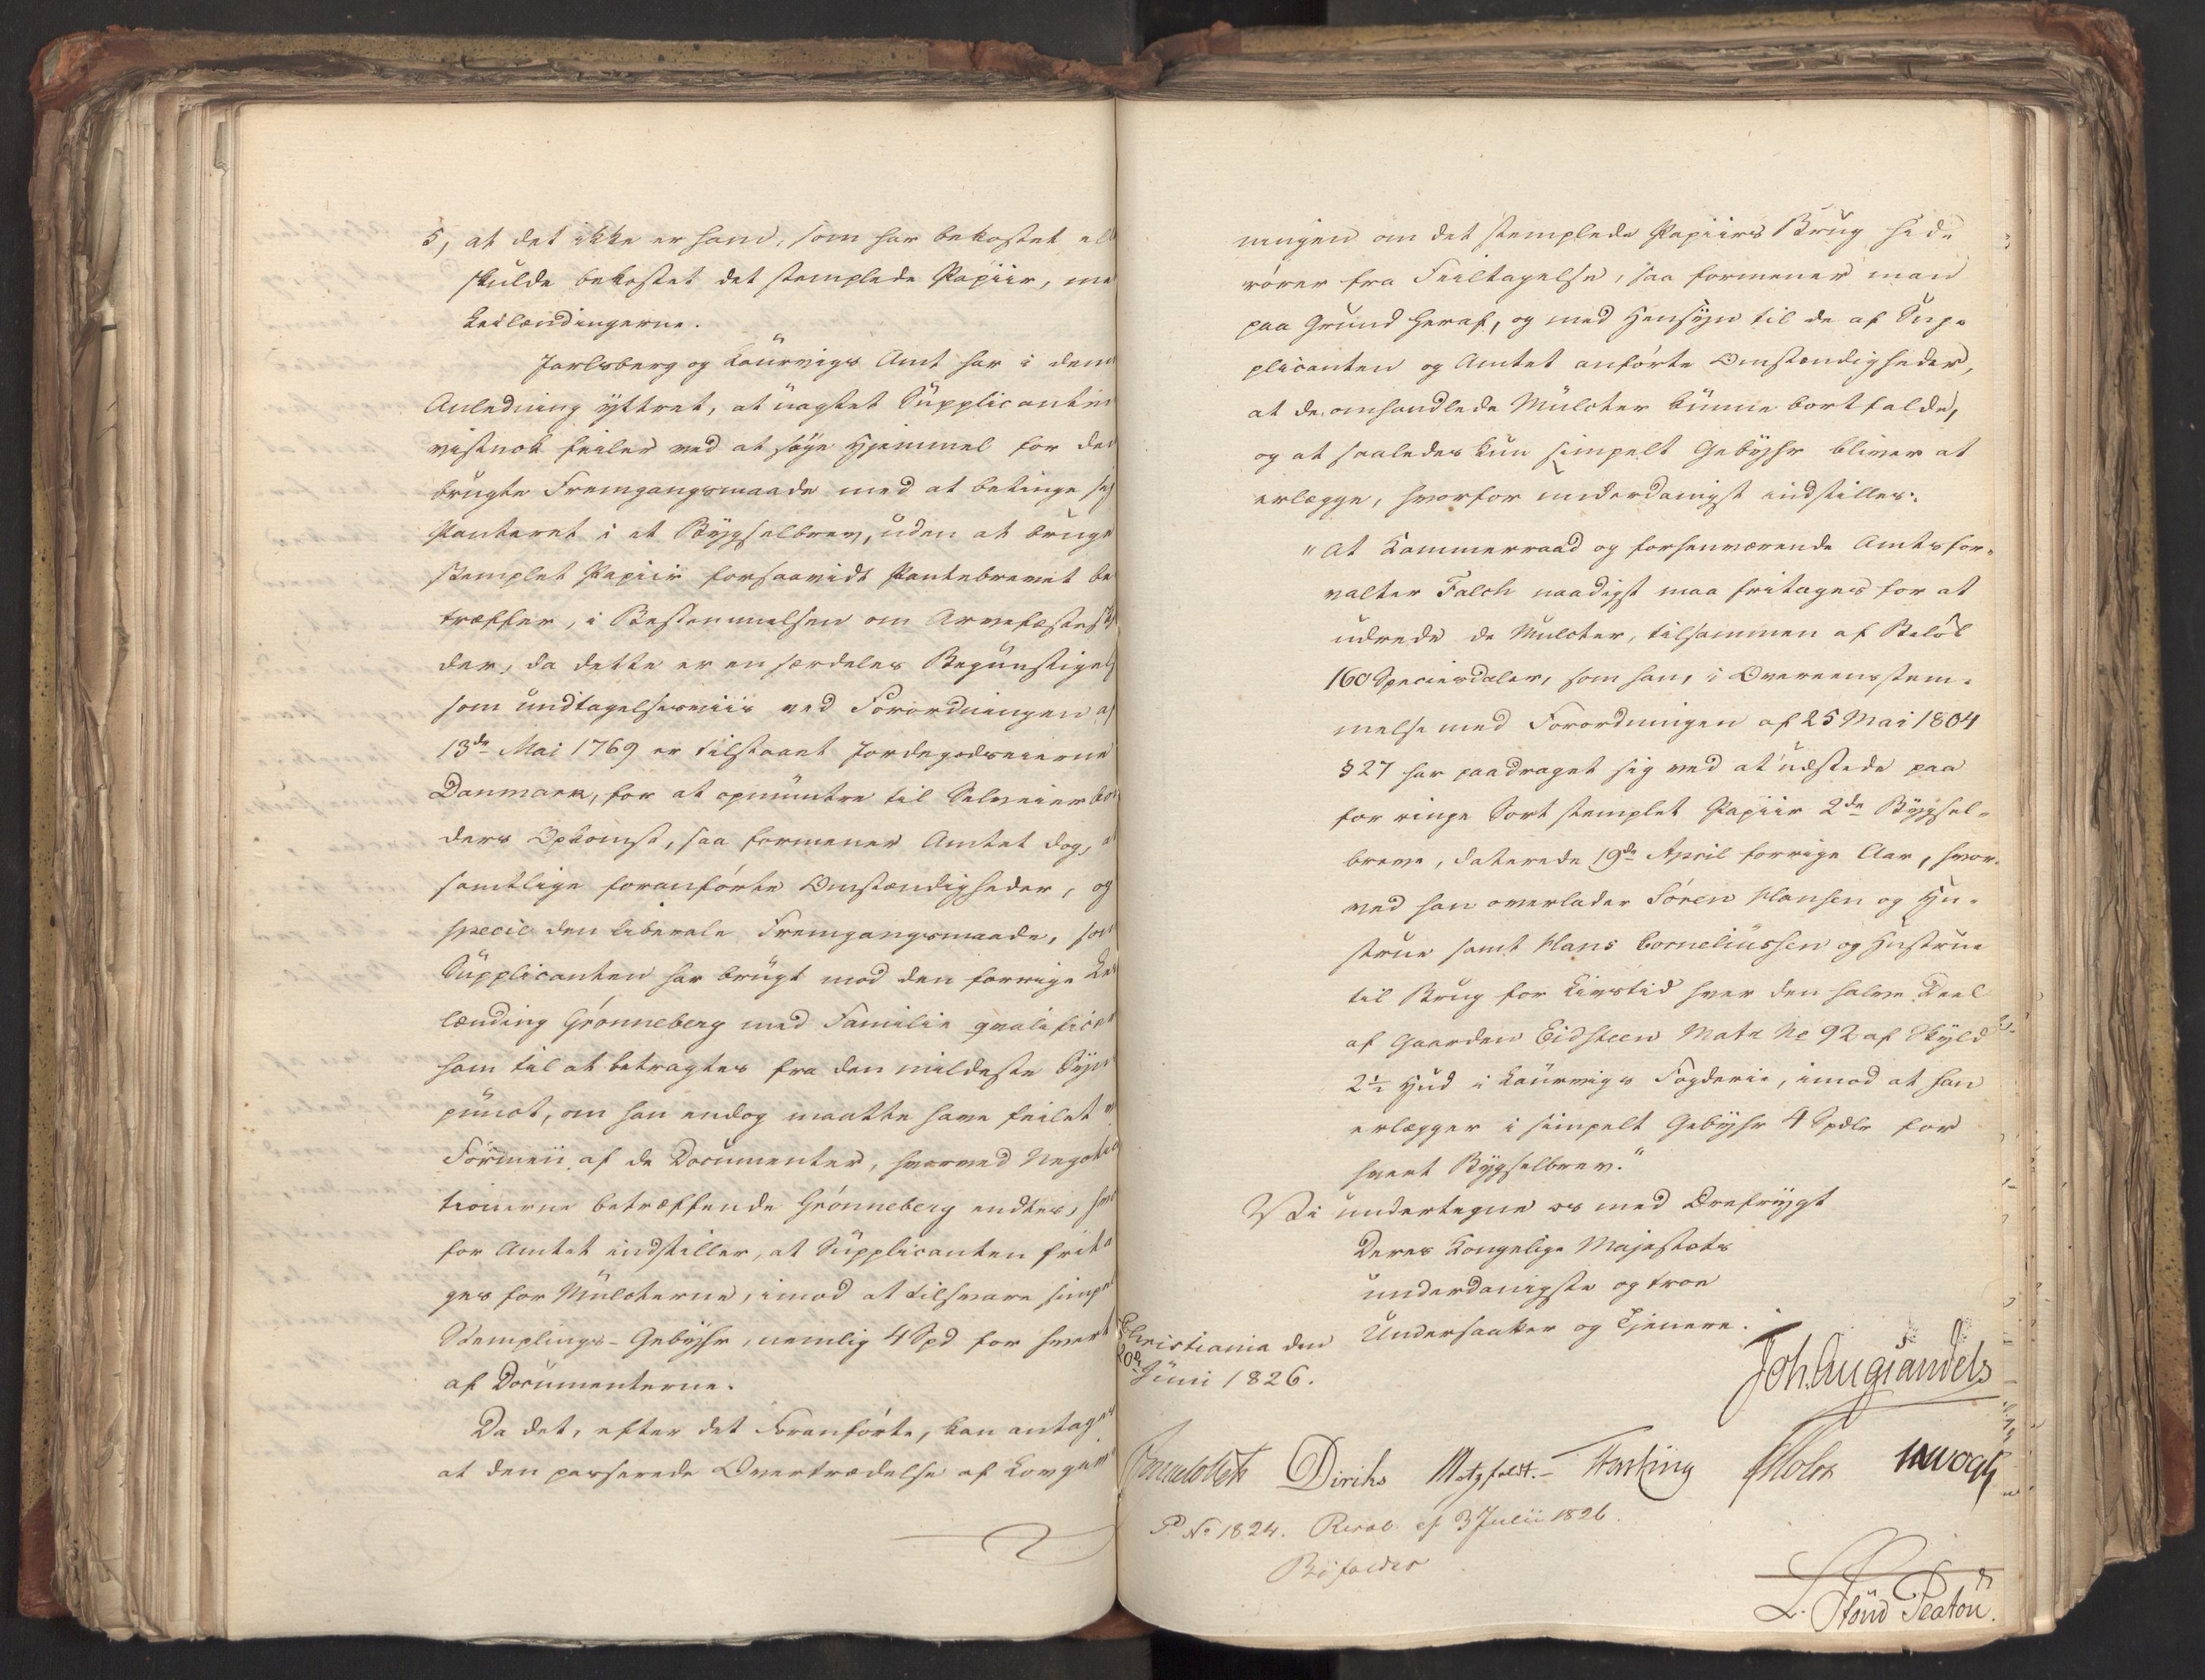 5, at det ikke er ham, som har bekostet ell
skulde bekostet det stemplede Papiir, me
Leilændingerne.
Jarlsberg og Laurvigs Amt har i den
Anledning yttret, at uagtet Supplicanten
vistnok feiler ved at søge Hjemmel for den
brugte Fremgangsmaade med at betinge sig
Panteret i et Bygselbrev, uden at bruge
stemplet Papiir forsaavidt Pantebrevet be
træffer, i Bestemmelsen om Arvefæste
der, da dette er en særdeles Begunstigels
som undtagelsesviis ved Forordningen af
13de Mai 1769 er tilstaaet Jordegodseierne
Danmark, for at opmuntre til Selveier bøn
ders Opkomst, saa formener Amtet dog, at
samtlige foranførte Omstændigheder, og
speciel den liberale Fremgangsmaade, som
Supplicanten har brugt mod den forrige Lei
lænding Grønneberg med Familie qvalificer
ham til at betragtes fra den mildeste Syns
punct, om han endog maatte have feilet i
Formen af de Documenter, hvorved Negotia
tionerne betræffende Grønneberg endtes, hvor
for Amtet indstiller, at Supplicanten frita
ges for Mulcterne, imod at tilsvare simpel
Stemplings-Gebyhr, nemlig 4 Spd for hvert
af Documenterne.
Da det, efter det Foranførte, kan antages
at den passerede Overtrædelse af Lovgiv
ningen om det stemplede Papiirs Brug hid-
rører fra Feiltagelse, saa formener man
paa Grund heraf, og med Hensyn til de af Sup-
plicanten og Amtet anførte Omstændigheder,
at de omhandlede Mulcter kunne bortfalde,
og at saaledes kun simpelt Gebyhr bliver at
erlægge, hvorfor underdanigst indstilles:
"At Kammerraad og forhenværende Amtsfor-
valter Falch naadigst maa fritages for at
udrede de Mulcter, tilsammen af Beløb
160 Speciesdaler, som han, i Overeensstem-
melse med Forordningen af 25 Mai 1804
§ 27 har paadraget sig ved at udstede paa
for ringe Sort stemplet Papiir 2de Bygsel-
breve, daterede 19de April forrige Aar, hvor-
ved han overlader Søren Hansen og Hu-
strue samt Hans Corneliussen og Hustrue
til Brug for Livstid hver den halve Deel
af Gaarden Eidsteen Matr No 92 af Skyld
2½ Hud i Laurvigs Fogderie, imod at han
erlægger i simpelt Gebyhr 4 Spdlr for
hvert Bygselbrev."
Vi undertegne os med Ærefrygt
Deres Kongelige Majestæts
underdanigste og troe
Undersaatter og Tjenere.
Christiania den
20de Juni 1826.
Joh. Aug Sandels
Diriks Motzfeldt.- Fasting Holst
P. No 1824. Resol. af 3 Julii 1826.
Bifaldes